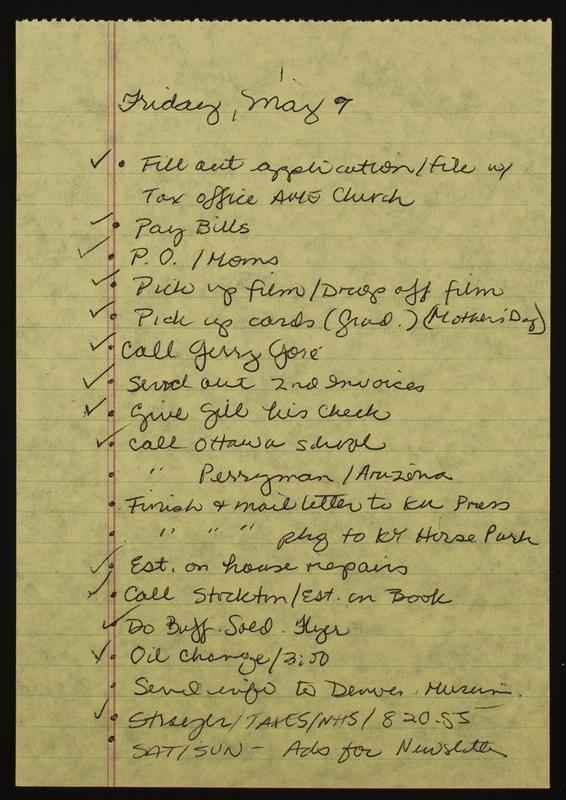 Friday, May 9
✓ • Fill out application/file w/
Tax office AME Church
✓ • Pay Bills
✓ • P.O. / Moms
✓ • Pick up film/Drop off film
✓ • Pick up cards (Grad.) (Mother's Day)
✓ • Call Gerry Gore
✓ • Send out 2nd Invoices
✓ • Give Gill his Check
✓ • Call Ottawa school
• " Perryman / Arizona
• Finish & mail letter to KU Press
• " " " pkg to KY Horse Park
✓ • Est. on house repairs
✓ • Call Stockton/Est. on Book
✓ • Do Buff. Sold. Flyer
✓ • Oil Change/3:00
• Send info to Denver Museum.
✓ • /TAXES/NHS/ 820.55
• SAT/SUN - Ads for Newsletter